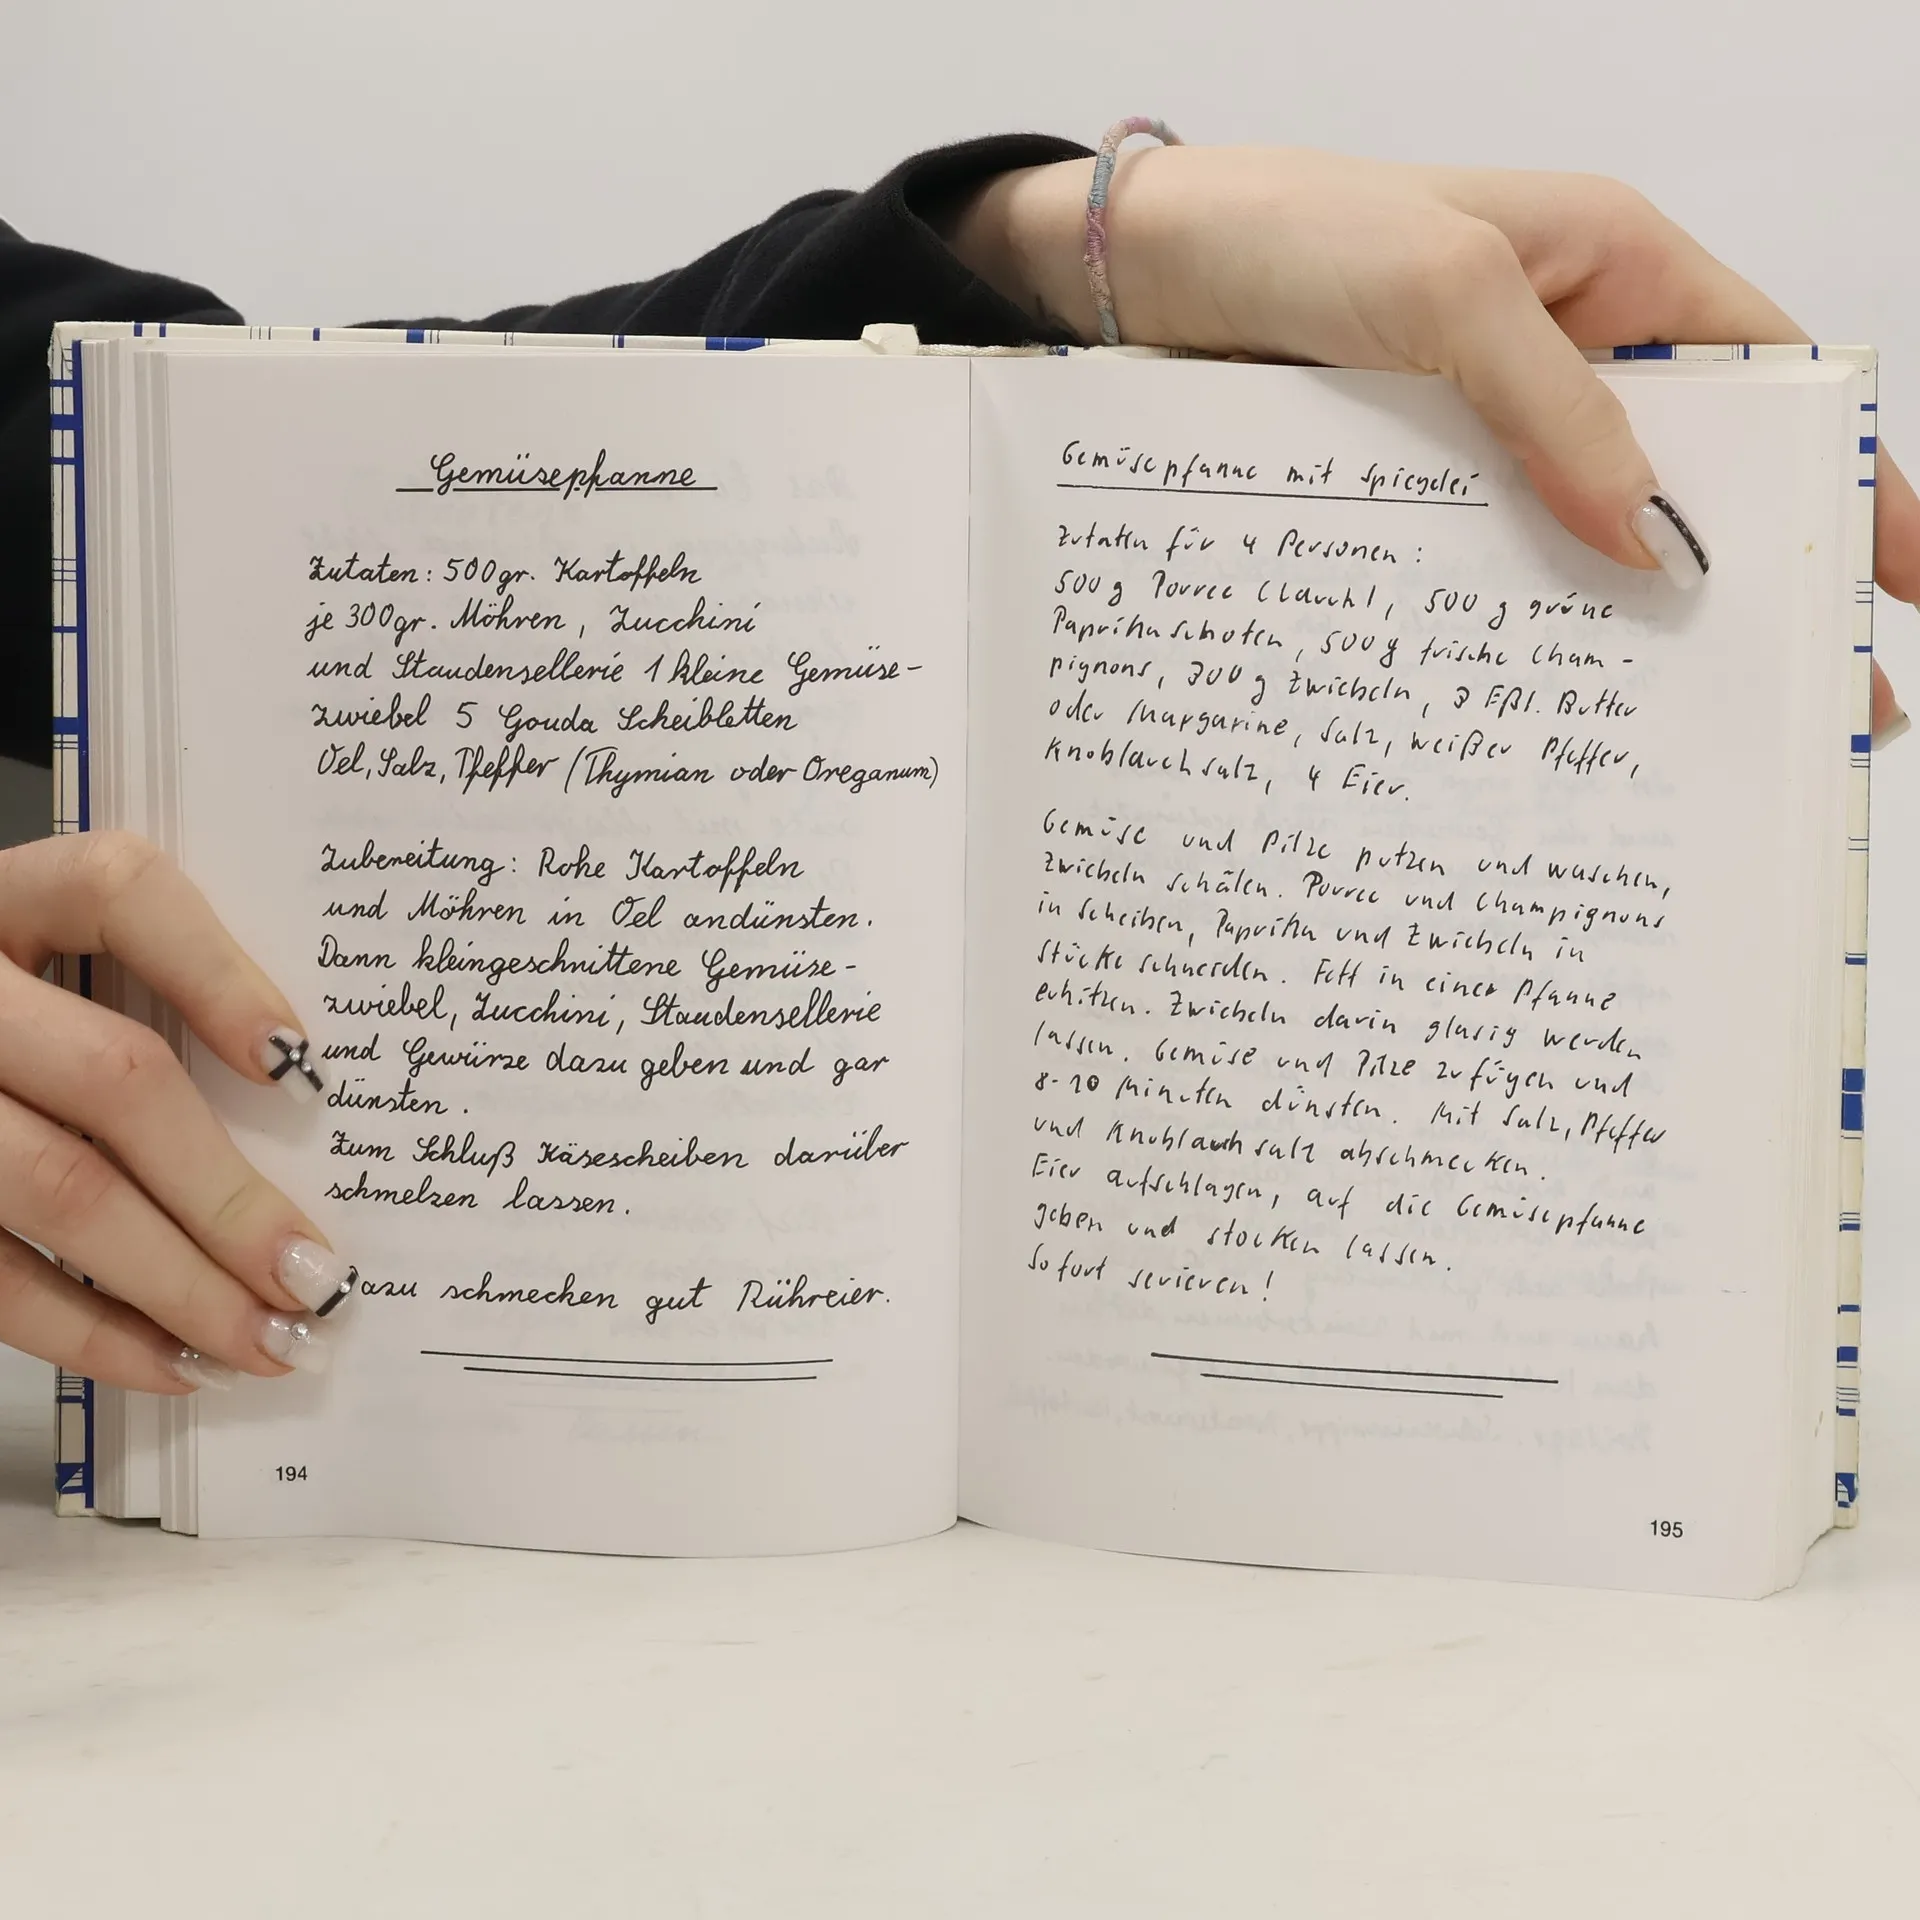 Gemüsepfanne
Zutaten: 500gr. Kartoffeln
je 300gr. Möhren, Zucchini
und Staudensellerie 1 kleine Gemüse-
zwiebel 5 Gouda Scheibletten
Oel, Salz, Pfeffer (Thymian oder Oreganum)
Zubereitung: Rohe Kartoffeln
und Möhren in Oel andünsten.
Dann kleingeschnittene Gemüse-
zwiebel, Zucchini, Staudensellerie
und Gewürze dazu geben und gar
dünsten.
Zum Schluß Käsescheiben darüber
schmelzen lassen.
Dazu schmecken gut Rühreier.
194
Gemüsepfanne mit Spiegelei
Zutaten für 4 Personen:
500 g Porree (Lauch), 500 g grüne
Paprikaschoten, 500 g frische Cham-
pignons, 300 g Zwiebeln, 3 Eßl. Butter
oder Margarine, Salz, weißer Pfeffer,
Knoblauchsalz, 4 Eier.
Gemüse und Pilze putzen und waschen,
Zwiebeln schälen. Porree und Champignons
in Scheiben, Paprika und Zwiebeln in
Stücke schneiden. Fett in einer Pfanne
erhitzen. Zwiebeln darin glasig werden
lassen. Gemüse und Pilze zufügen und
8-10 Minuten dünsten. Mit Salz, Pfeffer
und Knoblauchsalz abschmecken.
Eier aufschlagen, auf die Gemüsepfanne
geben und stocken lassen.
Sofort servieren!
195